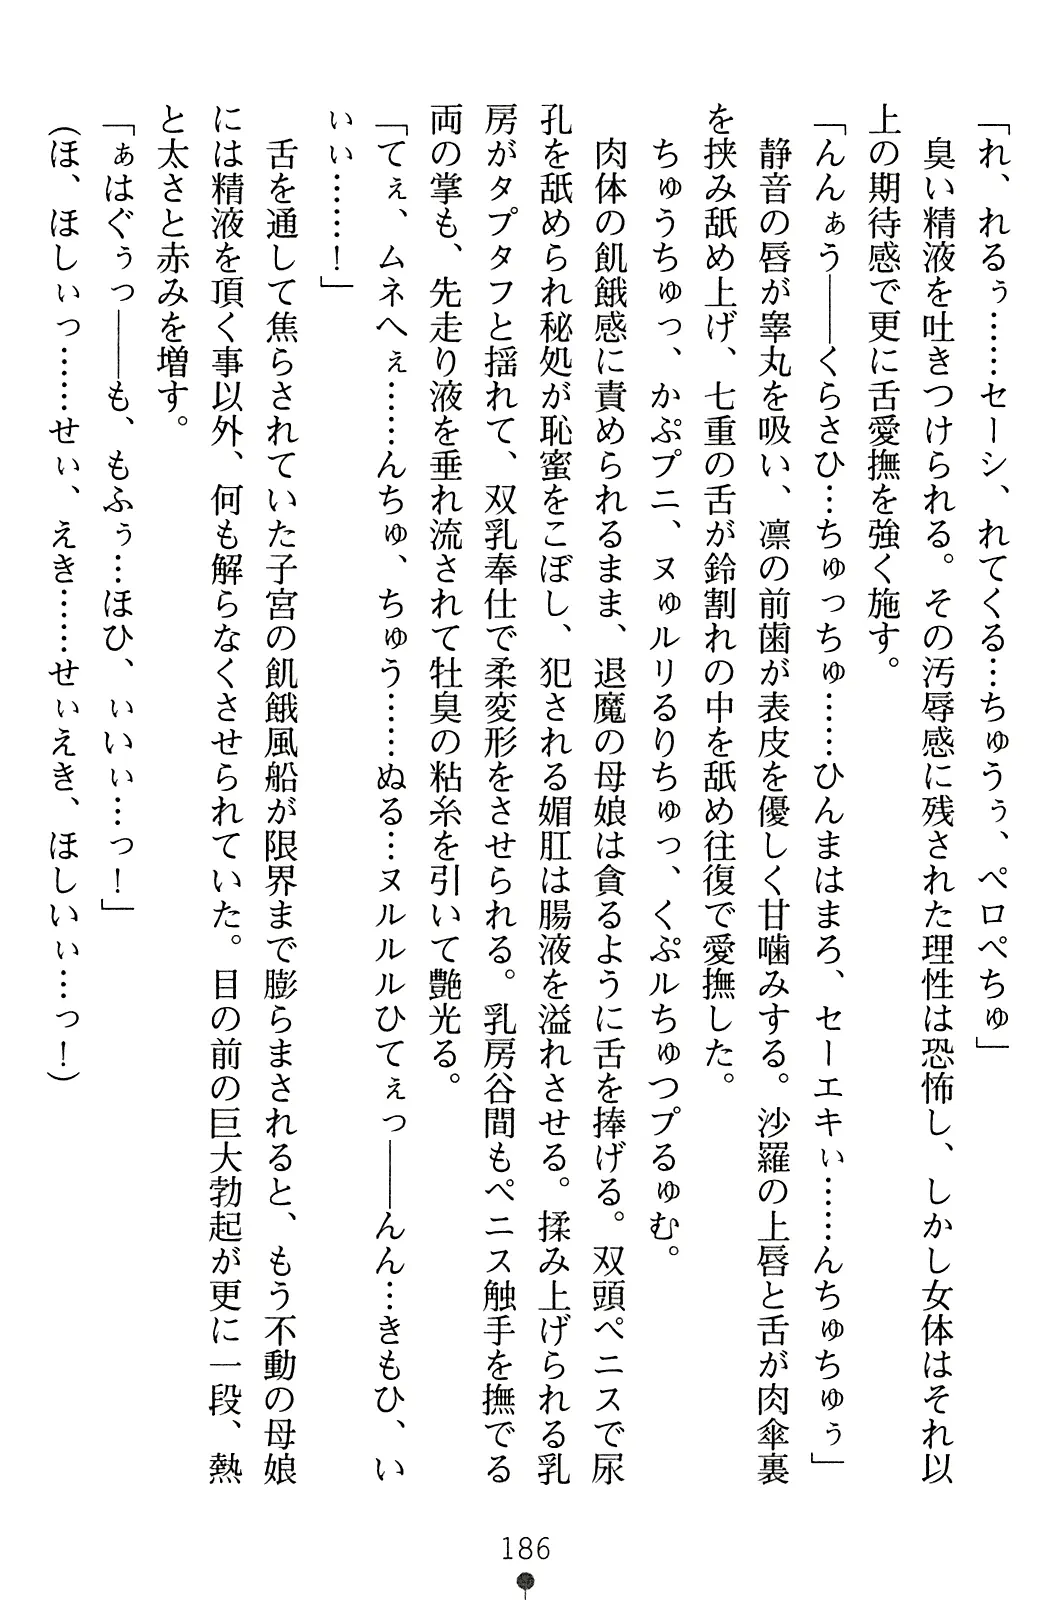 「れ、れるぅ……セーシ、れてくる…ちゅうぅ、ペロぺちゅ」
臭い精液を吐きつけられる。その汚辱感に残された理性は恐怖し、しかし女体はそれ以
上の期待感で更に舌愛撫を強く施す。
「んんぁう――くらさひ…ちゅっちゅ……ひんまはまろ、セーエキぃ……んちゅちゅぅ」
静音の唇が睾丸を吸い、凛の前歯が表皮を優しく甘噛みする。沙羅の上唇と舌が肉傘裏
を挟み舐め上げ、七重の舌が鈴割れの中を舐め往復で愛撫した。
ちゅうちゅっ、かぷプニ、ヌゅルリるりちゅっ、くぷルちゅつプるゅむ。
肉体の飢餓感に責められるまま、退魔の母娘は貪るように舌を捧げる。双頭ペニスで尿
孔を舐められ秘処が恥蜜をこぼし、犯される媚肛は腸液を溢れさせる。揉み上げられる乳
房がタプタフと揺れて、双乳奉仕で柔変形をさせられる。乳房谷間もペニス触手を撫でる
両の掌も、先走り液を垂れ流されて牡臭の粘糸を引いて艶光る。
「てぇ、ムネへぇ……んちゅ、ちゅう……ぬる…ヌルルルひてぇっ――んん…きもひ、い
ぃぃ……！」
舌を通して焦らされていた子宮の飢餓風船が限界まで膨らまされると、もう不動の母娘
には精液を頂く事以外、何も解らなくさせられていた。目の前の巨大勃起が更に一段、熱
と太さと赤みを増す。
「ぁはぐぅっ――も、もふぅ…ほひ、ぃいぃ…っ！」
（ほ、ほしぃっ……せぃ、えき……せぃえき、ほしいぃ…っ！）
186